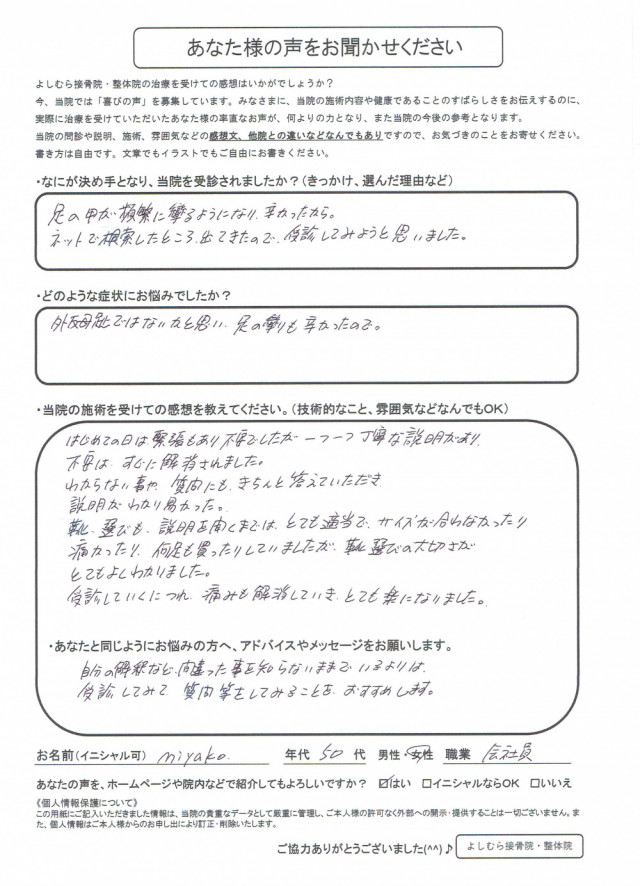 あなた様の声をお聞かせください
よしむら接骨院・整体院の治療を受けての感想はいかがでしょうか？
今、当院では「喜びの声」を募集しています。みなさまに、当院の施術内容や健康であることのすばらしさをお伝えするのに、
実際に治療を受けていただいたあなた様の率直なお声が、何よりの力となり、また当院の今後の参考となります。
当院の問診や説明、施術、雰囲気などの感想文、他院との違いなどなんでもありですので、お気づきのことをお寄せください。
書き方は自由です。文章でもイラストでもご自由にお書きください。
・なにが決め手となり、当院を受診されましたか？（きっかけ、選んだ理由など）
足の甲が頻繁に攣るようになり、辛かったから。
ネットで検索したところ、出てきたので、受診してみようと思いました。
・どのような症状にお悩みでしたか？
外反母趾ではないかと思い、足の攣りも辛かったので。
・当院の施術を受けての感想を教えてください。（技術的なこと、雰囲気などなんでもOK）
はじめての日は緊張もあり不安でしたが一つ一つ丁寧な説明があり、
不安は、すぐに解消されました。
わからない事や、質問にも、きちんと答えていただき
説明がわかり易かった。
靴、選びも、説明を聞くまでは、とても適当で、サイズが合わなかったり
痛かったり、何足も買ったりしていましたが、靴選びの大切さが
とてもよしわかりました。
受診していくにつれ、痛みも解消していき、とても楽になりました。
・あなたと同じようにお悩みの方へ、アドバイスやメッセージをお願いします。
自分の解釈など、間違った事を知らないままでいるよりは、
受診してみて、質問等をしてみることを、おすすめします。
お名前（イニシャル可） miyako. 年代 50 代 男性・女性 職業 会社員
あなたの声を、ホームページや院内などで紹介してもよろしいですか？ ☑はい □イニシャルならOK □いいえ
《個人情報保護について》
この用紙にご記入いただきました情報は、当院の貴重なデータとして厳重に管理し、ご本人様の許可なく外部への開示・提供することは一切ございません。ま
た、個人情報はご本人様からのお申し出により訂正・削除いたします。
ご協力ありがとうございました(^^)♪ よしむら接骨院・整体院